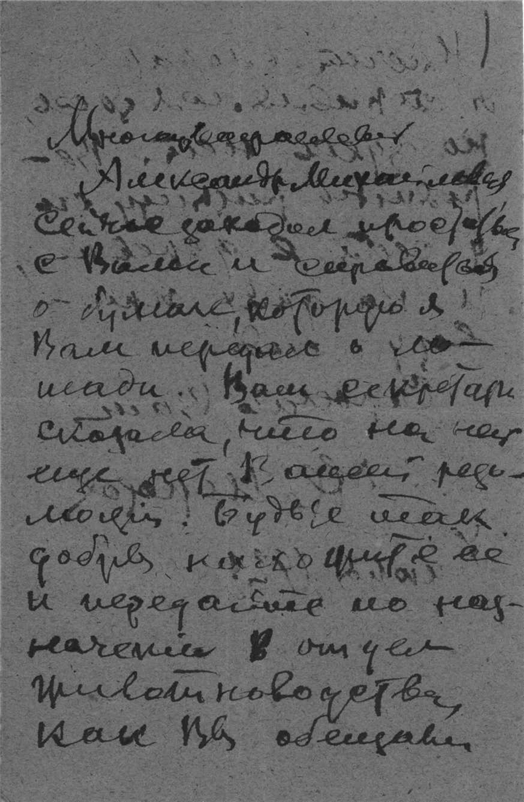 Многоуважаемый
Александр Михайлович
Сейчас заходил проститься
с Вами и справиться
о бумаге, которую я
Вам передал о ло-
шади. Ваш секретарь
сказала, что на ней
еще нет Вашей резо-
люции. Будьте так
добры наложите ее
и передайте по наз-
начению в отдел
животноводства,
как Вы обещали